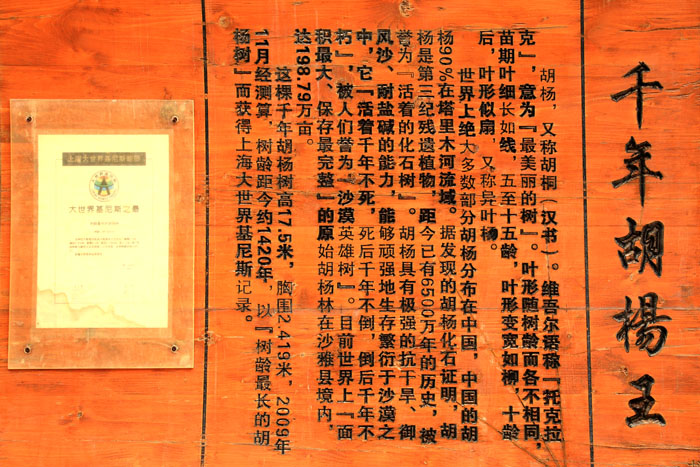 千年胡楊王
胡杨，又称胡桐（汉书）。维吾尔语称『托克拉
克』，意为『最美丽的树』。叶形随树龄而各不相同，
苗期叶细长如线，五至十五龄，叶形变宽如柳，十龄
后，叶形似扇，又称异叶杨。
世界上绝大多数部分胡杨分布在中国，中国的胡
杨90％在塔里木河流域。据发现的胡杨化石证明，胡
杨是第三纪残遗植物，距今已有6500万年的历史，被
誉为『活着的化石树』。胡杨具有极强的抗干旱、御
风沙、耐盐碱的能力，能够顽强地生存繁衍于沙漠之
中，它『活着千年不死，死后千年不倒，倒后千年不
朽』，被人们誉为『沙漠英雄树』。目前世界上『面
积最大、保存最完整』的原始胡杨林在沙雅县境内，
达198.79万亩。
这棵千年胡杨树高17.5米，胸围2.419米，2009年
11月经测算，树龄距今约1420年，以『树龄最长的胡
杨树』而获得上海大世界基尼斯记录。
大世界基尼斯之最